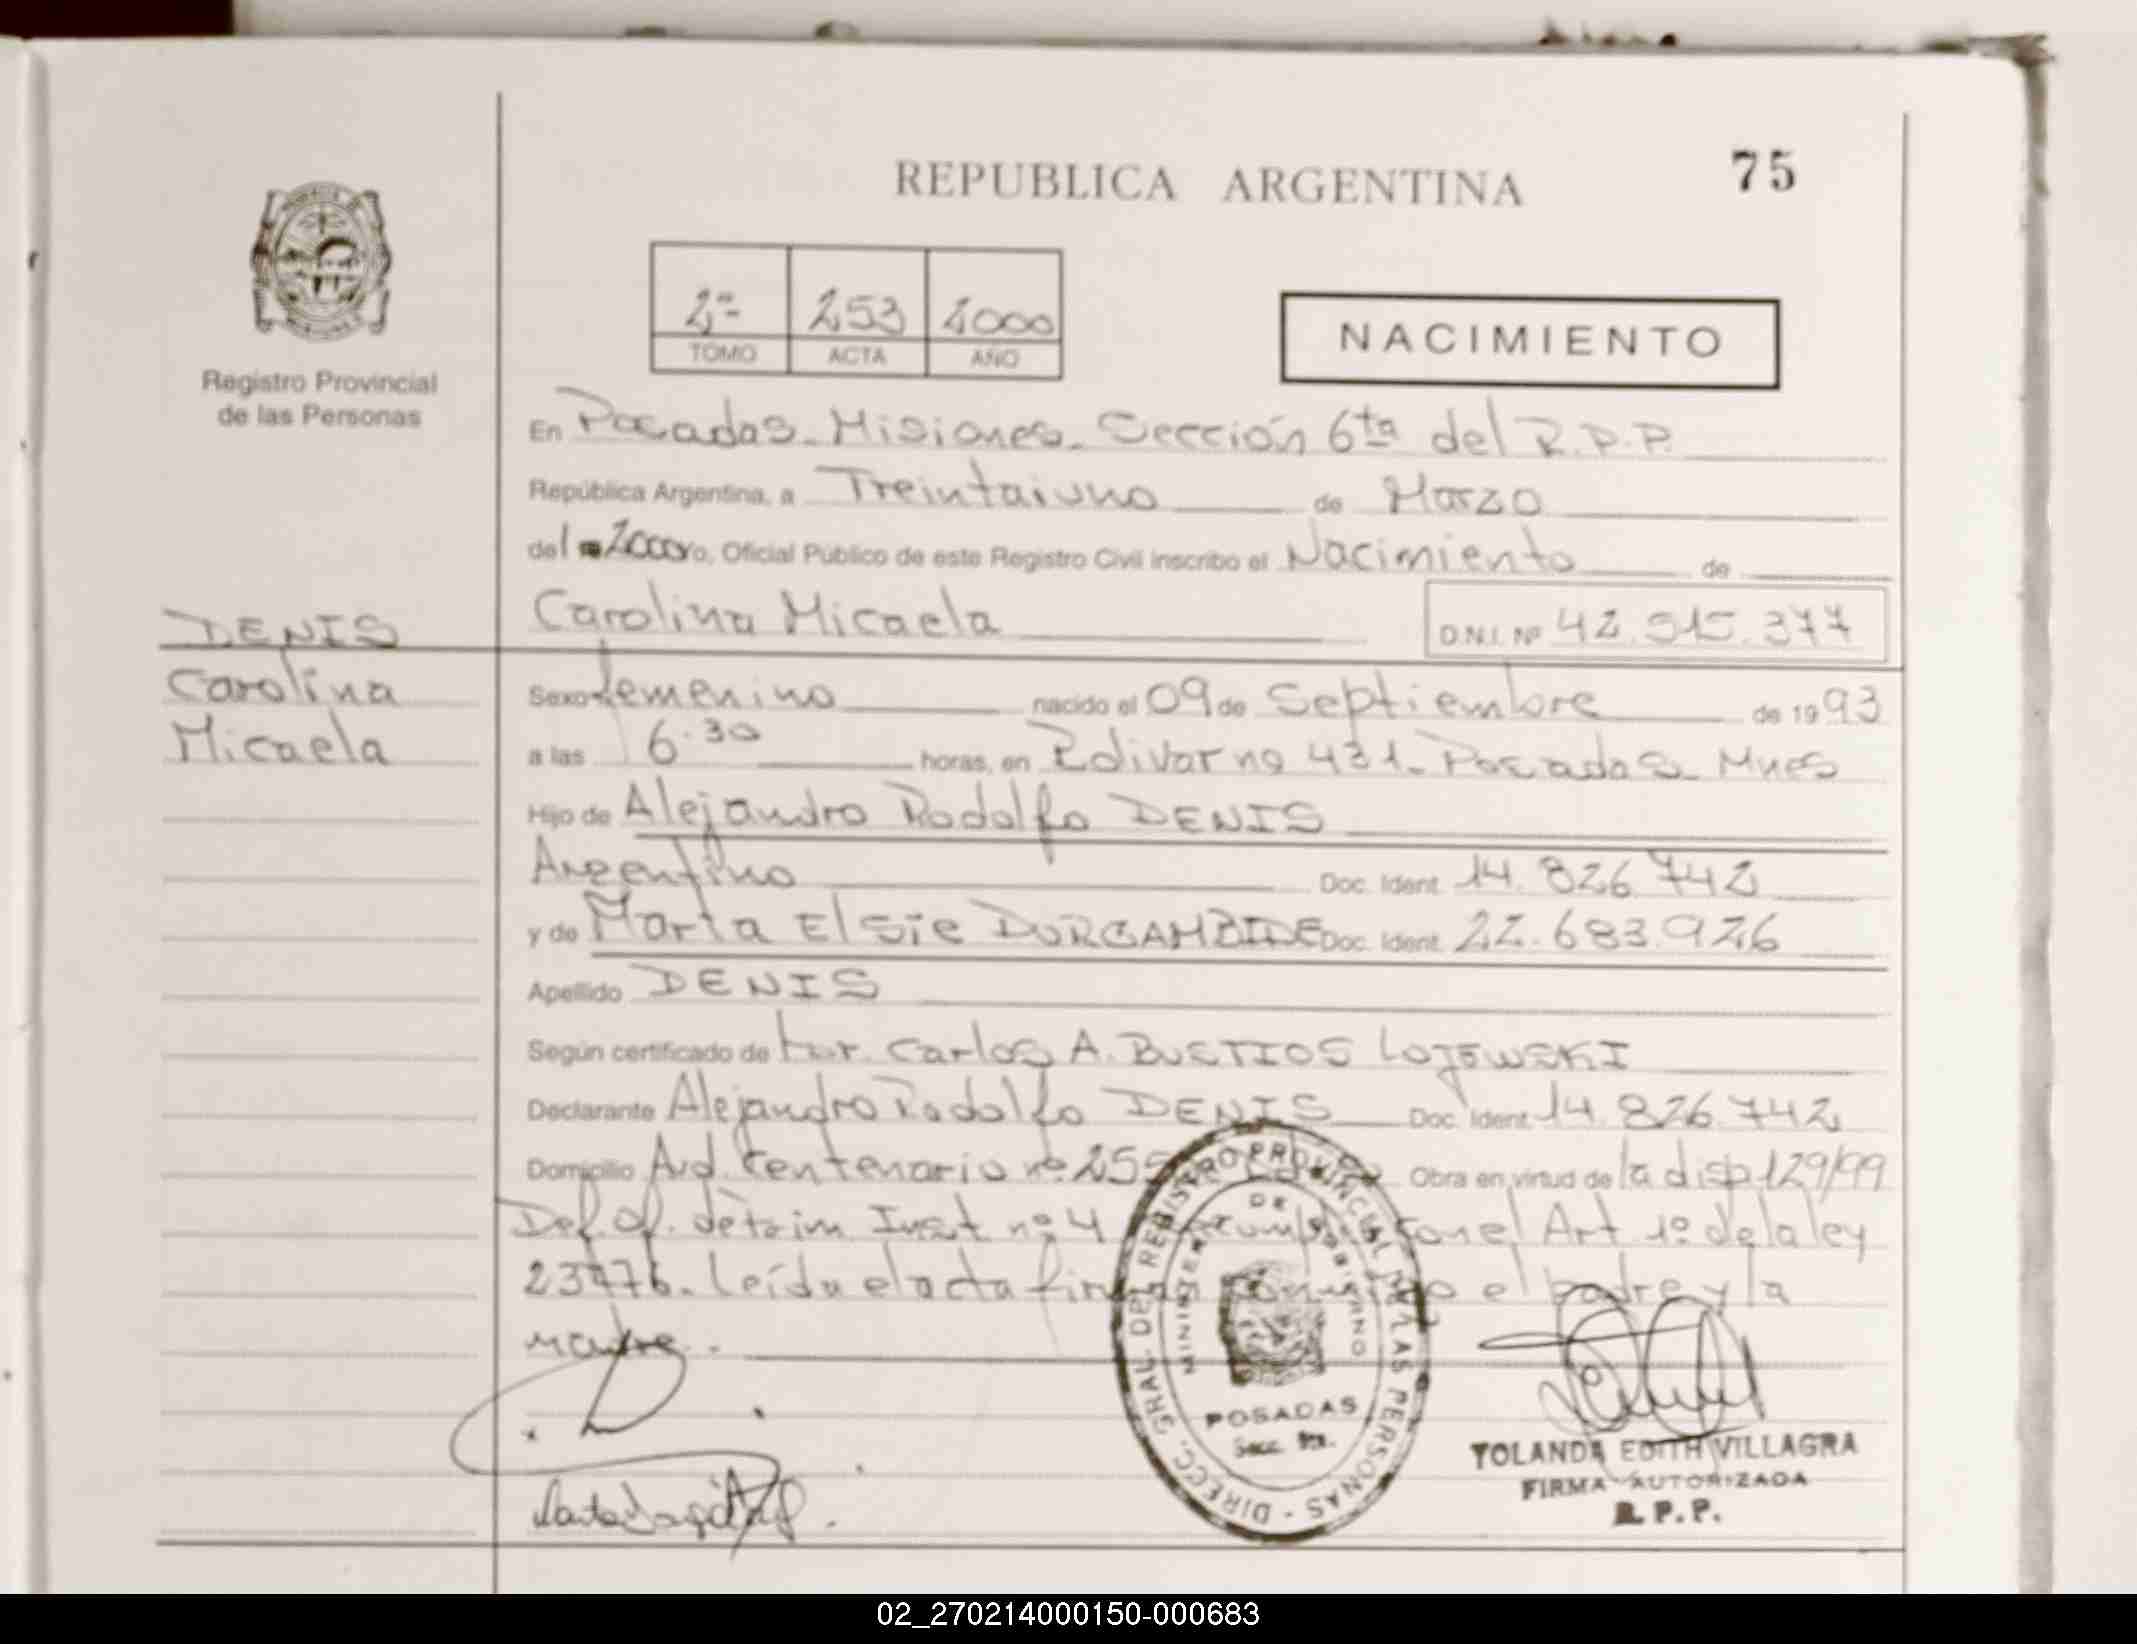 REPUBLICA ARGENTINA
75
2º
253
2000
TOMO
ACTA
AÑO
NACIMIENTO
Registro Provincial
de las Personas
En Posadas - Misiones - Sección 6ta del R.P.P.
República Argentina, a Treintaiuno de Marzo
del 2000 yo, Oficial Público de este Registro Civil inscribo el Nacimiento de
Carolina Micaela
D.N.I. Nº 42.515.377
DENIS
Carolina
Micaela
Sexo femenino nacido el 09 de Septiembre de 1993
a las 6.30 horas, en Bolivar nº 431 - Posadas - Mnes
Hijo de Alejandro Rodolfo DENIS
Argentino Doc. Ident. 14.826.742
y de Marta Elsie Doc. Ident. 22.683.926
Apellido DENIS
Según certificado de Carlos A. LOJEWSKI
Declarante Alejandro Rodolfo DENIS Doc. Ident. 14.826.742
Domicilio Avd. Centenario nº Obra en virtud de la disp 129/99
Def. Of. Inst nº 4 con el Art 1º de la ley
23776. Leída el acta firman conmigo el padre y la
madre.
DIRECC. GRAL. DEL REGISTRO PROVINCIAL DE LAS PERSONAS
MINISTERIO DE GOBIERNO
POSADAS
Secc. 6ta.
YOLANDA EDITH VILLAGRA
FIRMA AUTORIZADA
R.P.P.
02_270214000150-000683